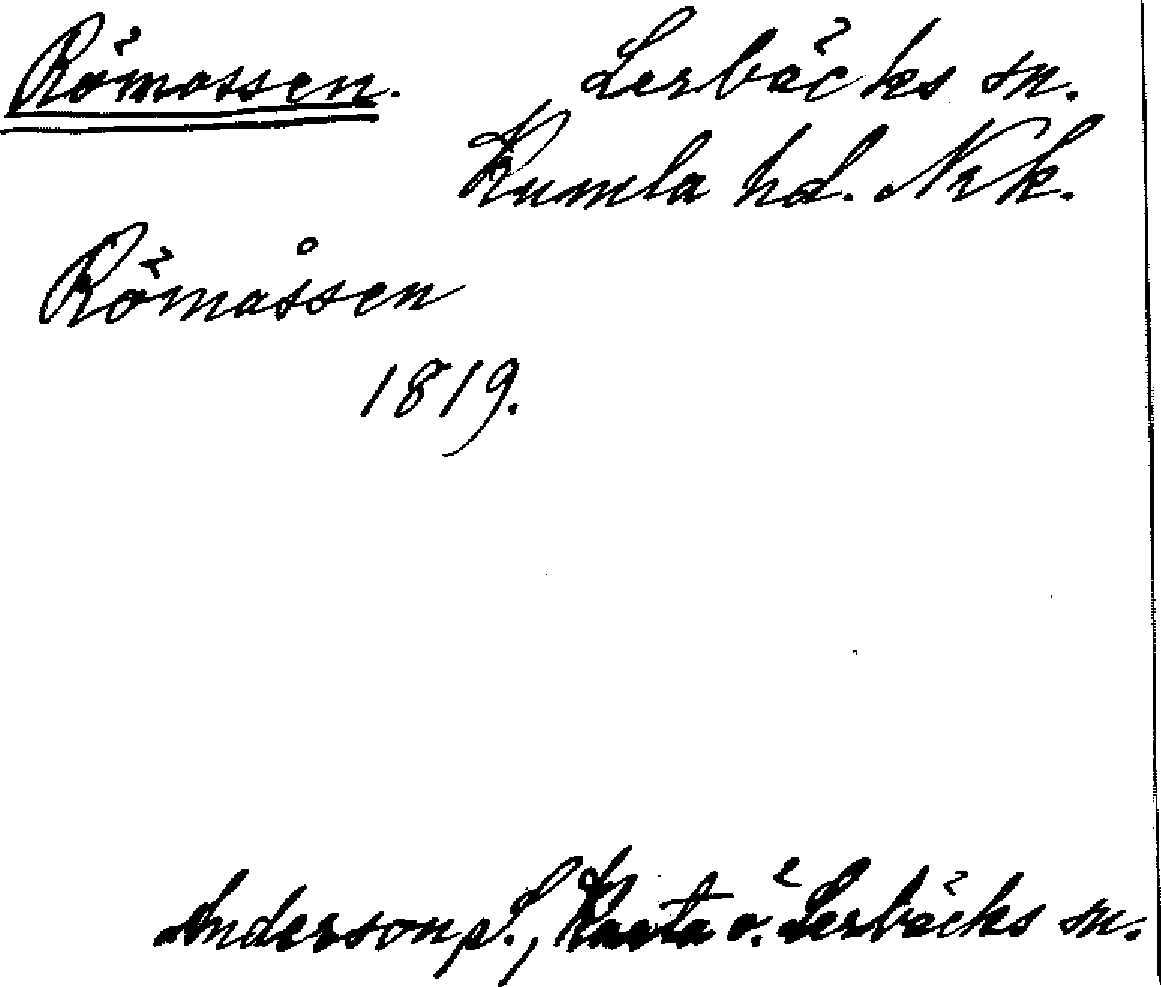 Römossen. Lerbäcks sn.
Kumla hd. Nrk.
Römåssen
1819.
Anderson, Karta ö. Lerbäcks sn.